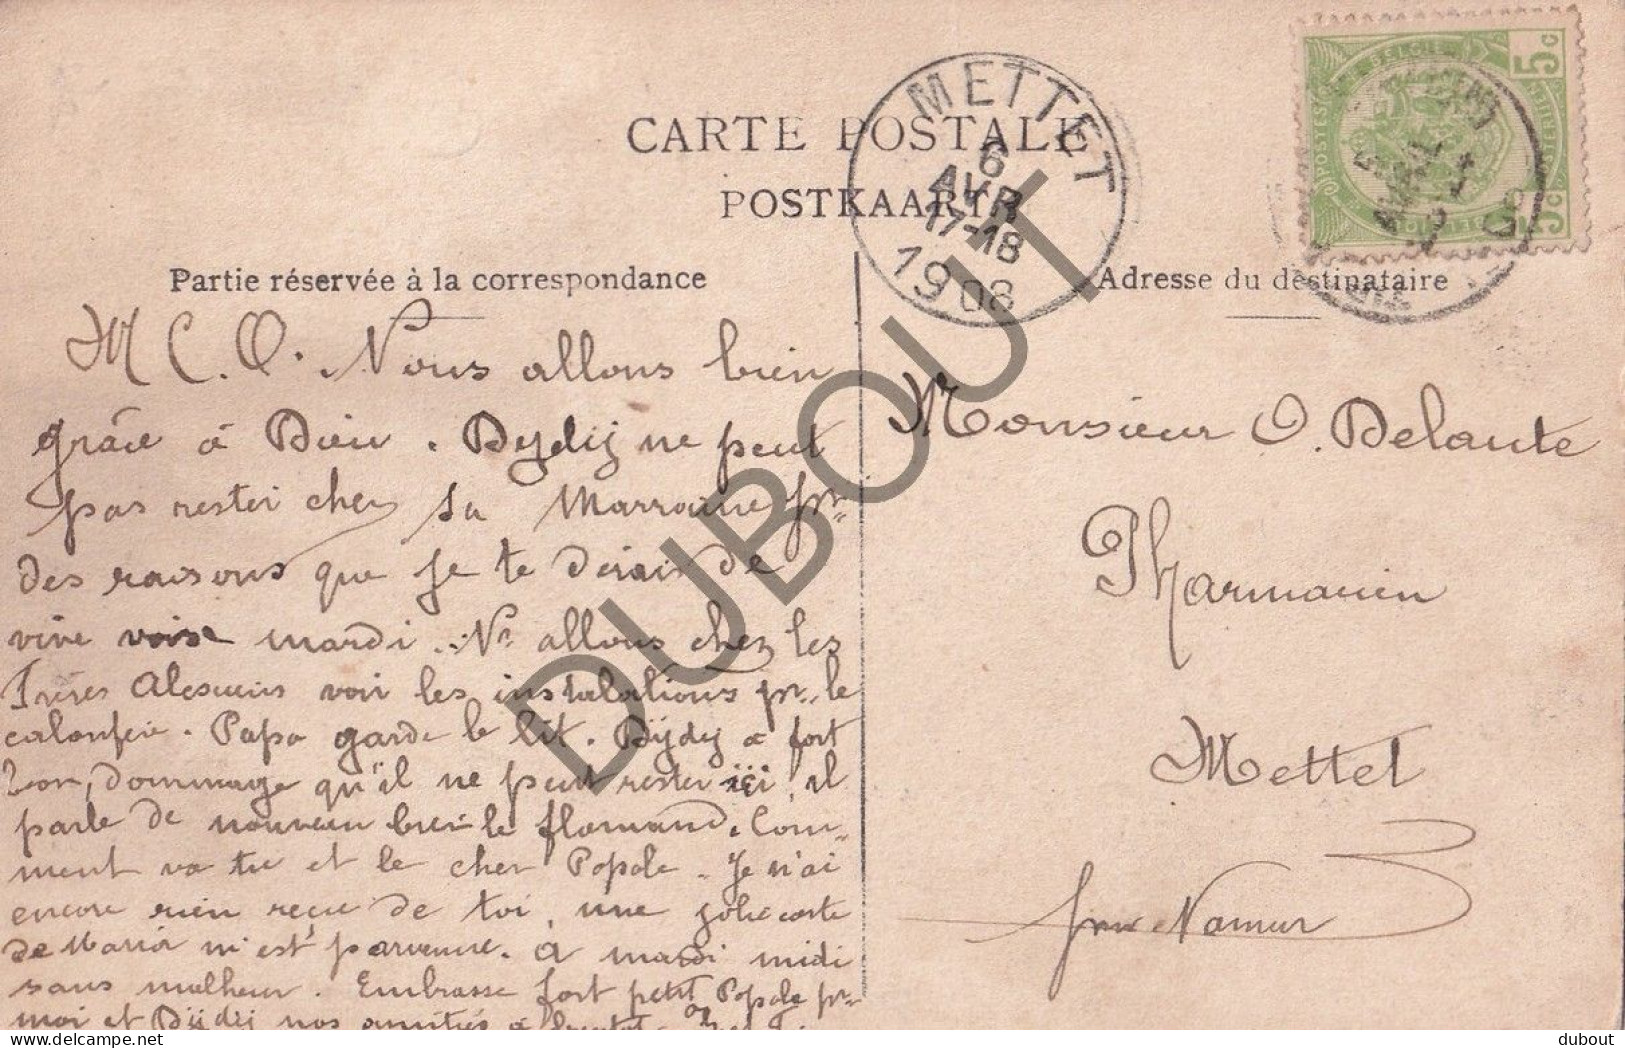 CARTE POSTALE
POSTKAART
METTET
6
AVR
17-18
1908
5c
5c
Partie réservée à la correspondance
Adresse du destinataire
M C. O. Nous allons bien
grâce à Dieu. Dydij ne peut
pas rester chez sa Marraine pr.
des raisons que je te dirais de
vive voise mardi. Ns allons chez les
Frères Alexiens voir les instalations pr. le
calorifère. Papa garde le lit. Dijdij a fort
bon, dommage qu'il ne peut rester ici, il
parle de nouveau le flamand. Com-
ment va tu et le cher Popole. Je n'ai
encore rien reçu de toi, une jolie carte
de Maria m'est parvenue. A mardi midi
sans malheur. Embrasse fort petit Popole pr
moi et Dijdij nos amitiés à
Monsieur O. Delante
Pharmacien
Mettet
prov Namur
DUBOUT
delcampe.net
dubout